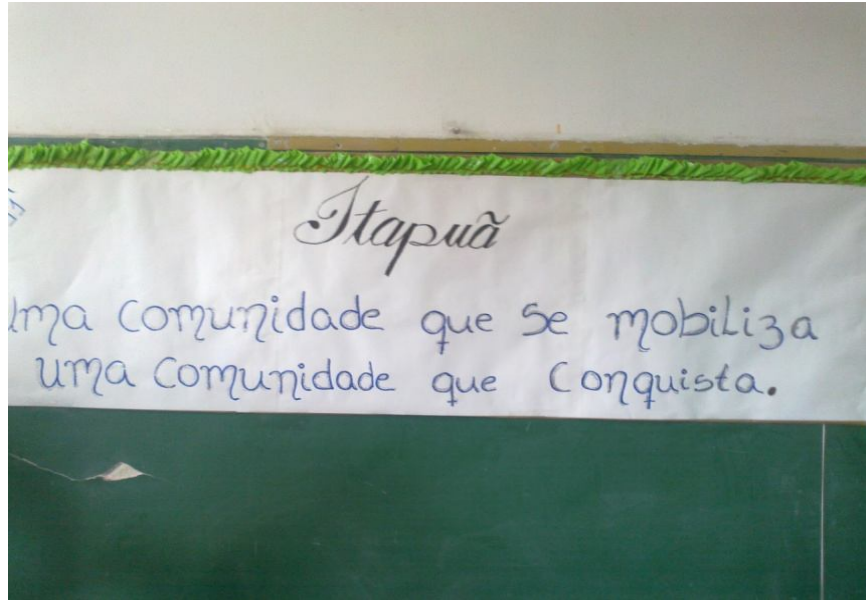 Itapuã
uma comunidade que se mobiliza
uma comunidade que conquista.